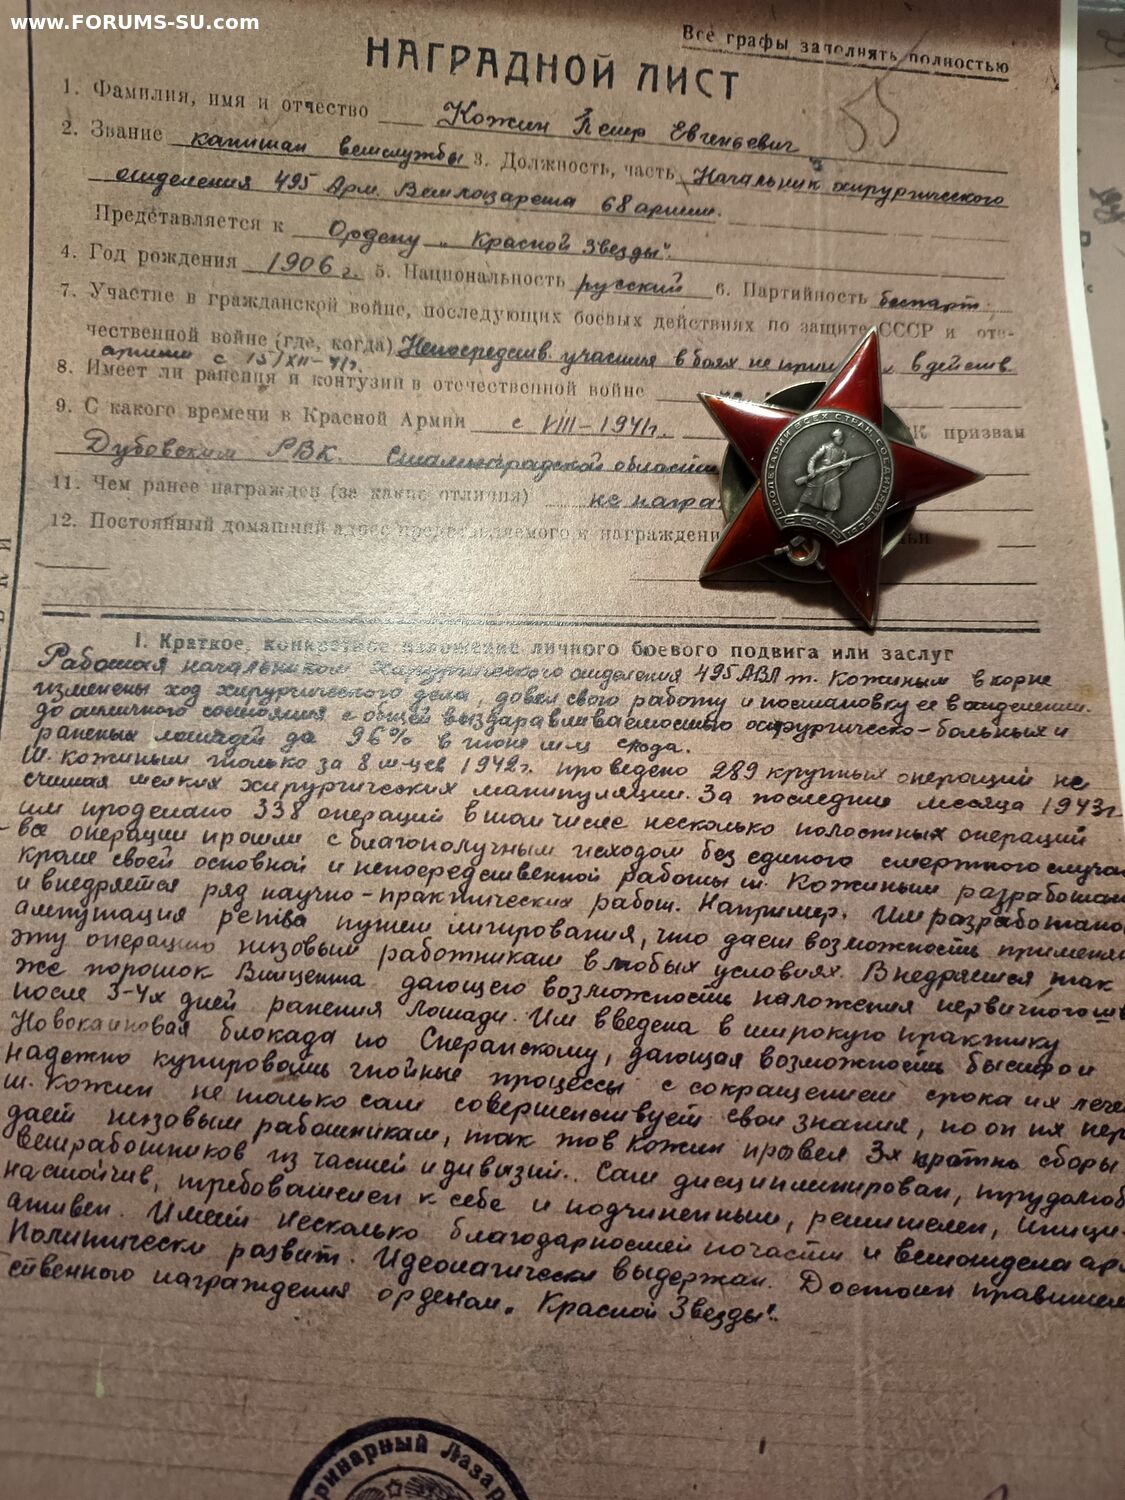 www.FORUMS-SU.com
Все графы заполнять полностью
НАГРАДНОЙ ЛИСТ
55
1. Фамилия, имя и отчество Кожин Петр Евгеньевич
2. Звание капитан ветслужбы 3. Должность, часть Начальник хирургического
отделения 495 Арм. Ветлазарета 68 армии.
Представляется к Ордену „Красной Звезды".
4. Год рождения 1906 г. 5. Национальность русский 6. Партийность беспарт.
7. Участие в гражданской войне, последующих боевых действиях по защите СССР и оте-
чественной войне (где, когда) Непосредств. участия в боях не в действ.
армии с 15/XII-41г.
8. Имеет ли ранения и контузии в отечественной войне
9. С какого времени в Красной Армии с VIII-1941г. призван
Дубовским РВК. Сталинградской области
11. Чем ранее награжден (за какие отличия) не награ
12. Постоянный домашний адрес представляемого к награждени
I. Краткое, конкретное изложение личного боевого подвига или заслуг
Работая начальником хирургического отделения 495 АВЛ т. Кожиным в корне
изменены ход хирургического дела, довел свою работу и постановку ее в отделении.
до отличного состояния с общей выздаравливаемостью хирургическо-больных и
раненых лошадей до 96% в года.
Т. Кожиным только за 8 м-цев 1942г. проведено 289 крупных операций не
считая мелких хирургических манипуляций. За последние месяца 1943г.
им проделано 338 операций в том числе несколько полостных операций
все операции прошли с благополучным исходом без единого смертного случая
Кроме своей основной и непосредственной работы т. Кожиным разработан
и внедряется ряд научно-практических работ. Например. Им разработано
ампутация penisa путем лигирования, что дает возможность применят
эту операцию низовым работникам в любых условиях. Внедряется так
же порошок Винцента дающего возможность наложения первичного шв
после 3-4х дней ранения лошади. Им введена в широкую практику
Новокаиновая блокада по Сперанскому, дающая возможность быстро и
надежно купировать гнойные процессы с сокращением срока их лече
т. Кожин не только сам совершенствует свои знания, но он их пер
дает низовым работникам, так тов Кожин провел 3х кратны сборы
ветработников из частей и дивизий. Сам дисциплинирован, трудолюб
настойчив, требователен к себе и подчиненным, решителен, иници-
ативен. Имеет несколько благодарностей по части и ветотдела ар
Политически развит. Идеологически выдержан. Достоин правител
ственного награждения орденом „Красной Звезды".
ПРОЛЕТАРИИ ВСЕХ СТРАН, СОЕДИНЯЙТЕСЬ!
СССР
ринарный Лазар